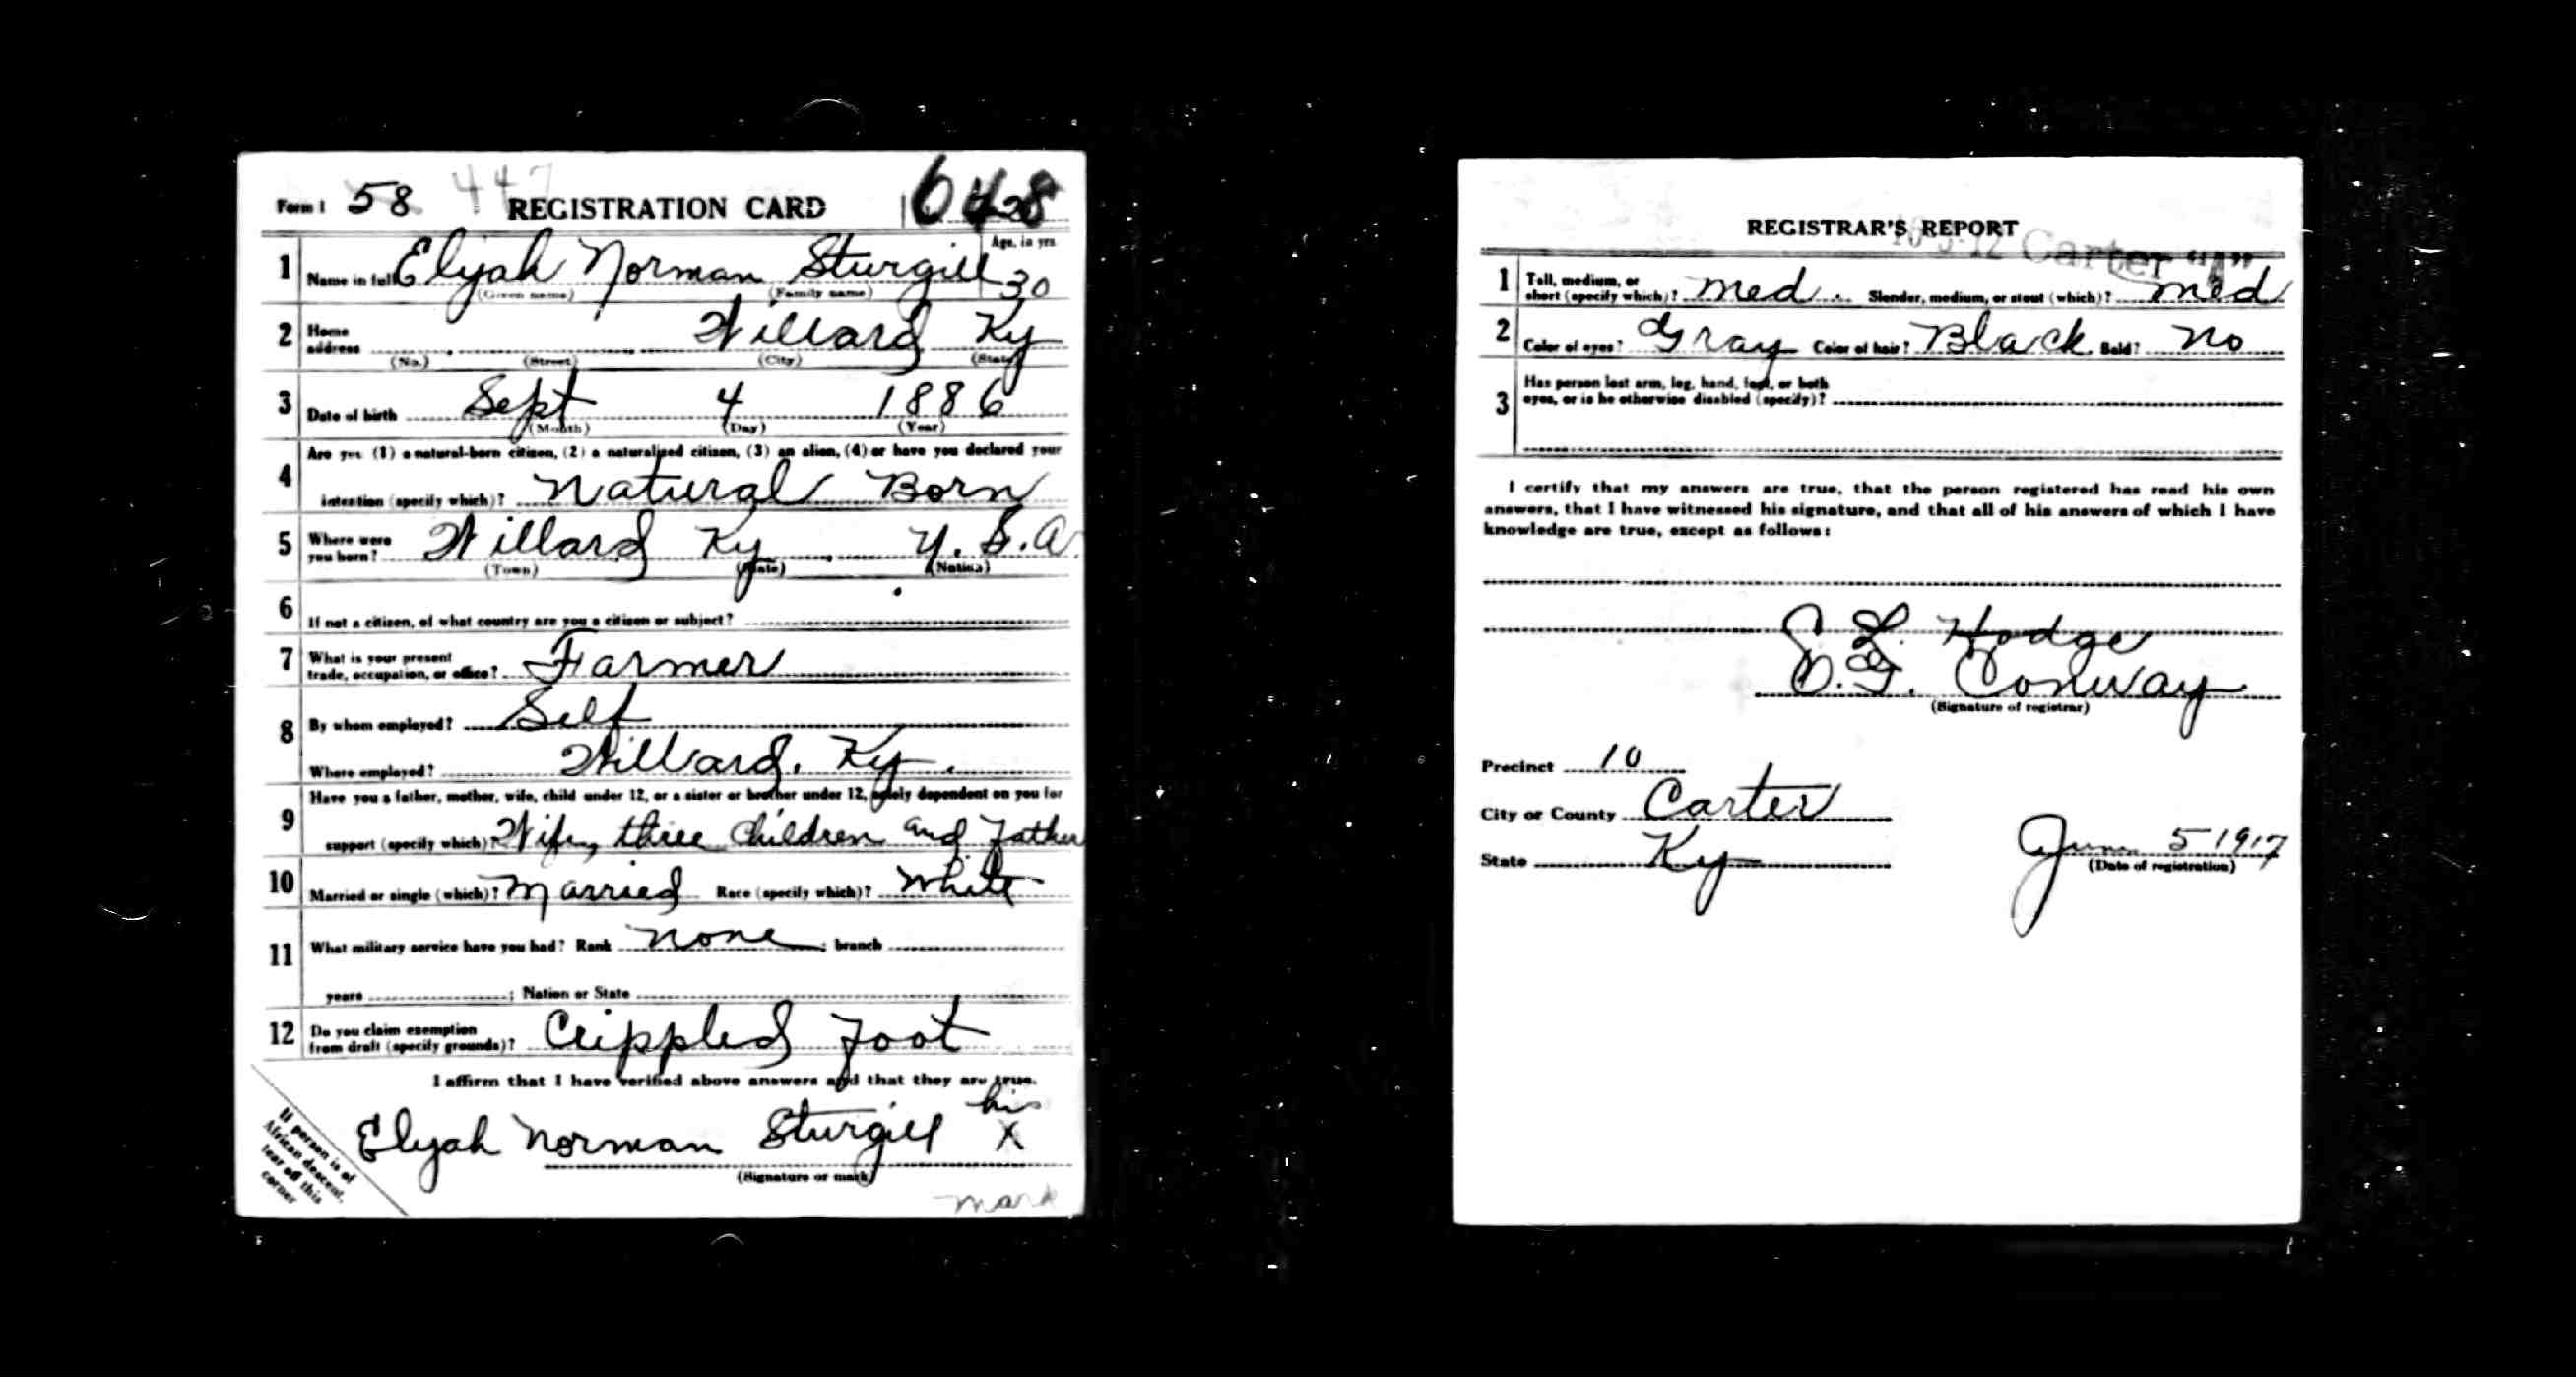 Form 1 58 447 REGISTRATION CARD 648
1 Name in full Elijah Norman Sturgill Age, in yrs. 30
(Given name) (Family name)
2 Home address Willard Ky
(No.) (Street) (City) (State)
3 Date of birth Sept 4 1886
(Month) (Day) (Year)
4 Are you (1) a natural-born citizen, (2) a naturalized citizen, (3) an alien, (4) or have you declared your
intention (specify which)? Natural Born
5 Where were you born? Willard Ky U.S.A.
(Town) (State) (Nation)
6 If not a citizen, of what country are you a citizen or subject?
7 What is your present trade, occupation, or office? Farmer
8 By whom employed? Self
Where employed? Willard, Ky.
9 Have you a father, mother, wife, child under 12, or a sister or brother under 12, solely dependent on you for
support (specify which)? Wife, three Children and Father
10 Married or single (which)? Married Race (specify which)? White
11 What military service have you had? Rank None; branch
years ; Nation or State
12 Do you claim exemption from draft (specify grounds)? Crippled Foot
I affirm that I have verified above answers and that they are true.
his
Elijah Norman Sturgill X
(Signature or mark)
mark
If person is of
African descent,
tear off this
corner
REGISTRAR'S REPORT
Carter "A"
1 Tall, medium, or short (specify which)? Med. Slender, medium, or stout (which)? Med
2 Color of eyes? Gray Color of hair? Black Bald? No
3 Has person lost arm, leg, hand, foot, or both
eyes, or is he otherwise disabled (specify)?
I certify that my answers are true, that the person registered has read his own
answers, that I have witnessed his signature, and that all of his answers of which I have
knowledge are true, except as follows:
Hodge
Conway
(Signature of registrar)
Precinct 10
City or County Carter
State Ky
June 5 1917
(Date of registration)